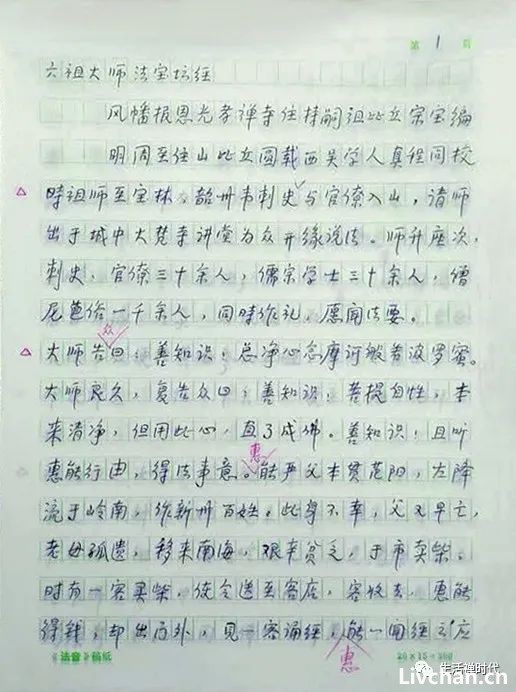 第 1 页
六祖大师法宝坛经
风幡报恩光孝禅寺住持嗣祖比丘宗宝编
明 住山比丘圆 西吴学人真 同校
时祖师至宝林,韶州韦刺史与官僚入山,请师
出于城中大梵寺讲堂为众开缘说法。师升座次,
刺史,官僚三十余人,儒宗学士三十余人,僧
尼道俗一千余人,同时作礼,愿闻法要。
众
大师告曰:善知识,总净心念摩诃般若波罗蜜。
大师良久,复告众曰:善知识,菩提自性,本
来清净,但用此心,直了成佛。善知识,且听
惠
惠能行由,得法事意。能严父本贯范阳,左降
流于岭南,作新州百姓。此身不幸,父又早亡,
老母孤遗,移来南海,艰辛贫乏,于市卖柴。
时有一客买柴,使令送至客店,客收去,惠能
得钱,却出门外,见一客诵经,能一闻经云应
惠
《法音》稿纸
20×15=300
生活禅时代
Livchan.cn